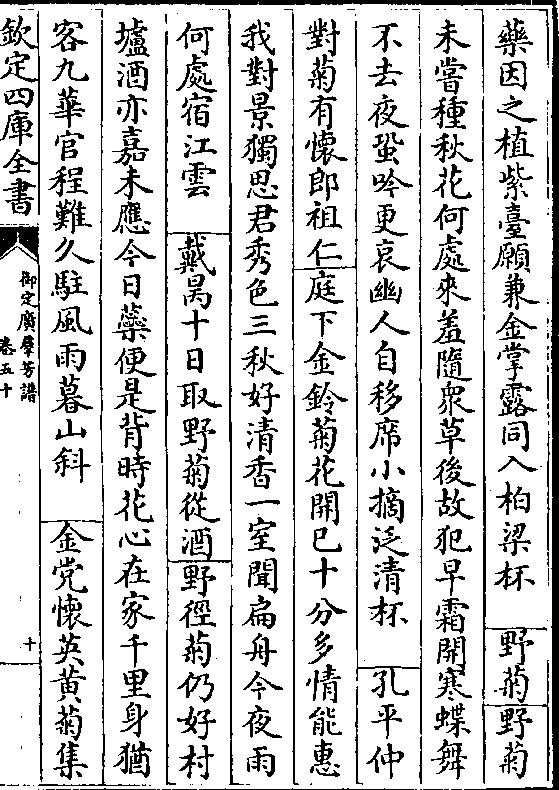 藥因之植紫臺願兼金掌露同入柏梁杯　野菊野菊
未嘗種秋花何處來羞隨衆草後故犯早霜開寒蝶舞
不去夜蛩吟更哀幽人自移席小摘泛清杯　孔平仲
對菊有懷郎祖仁庭下金鈴菊花開已十分多情能惠
我對景獨思君秀色三秋好清香一室聞扁舟今夜雨
何處宿江雲　戴昺十日取野菊從酒野徑菊仍好村
壚酒亦嘉未應今日蘂便是背時花心在家千里身猶
客九華官程難久駐風雨暮山斜　金党懷英黄菊集
欽定四庫全書
御定廣羣芳譜
卷五十
十